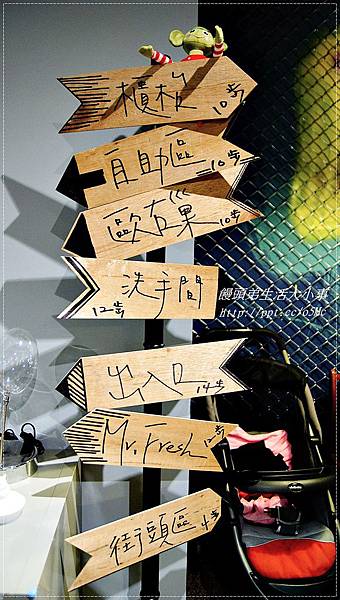 櫃枱
10步
自助區
10步
歐若菓
10步
洗手間
12步
饅頭弟生活大小事
出入口
14步
Mr. Fresh
12步
街頭區
4步